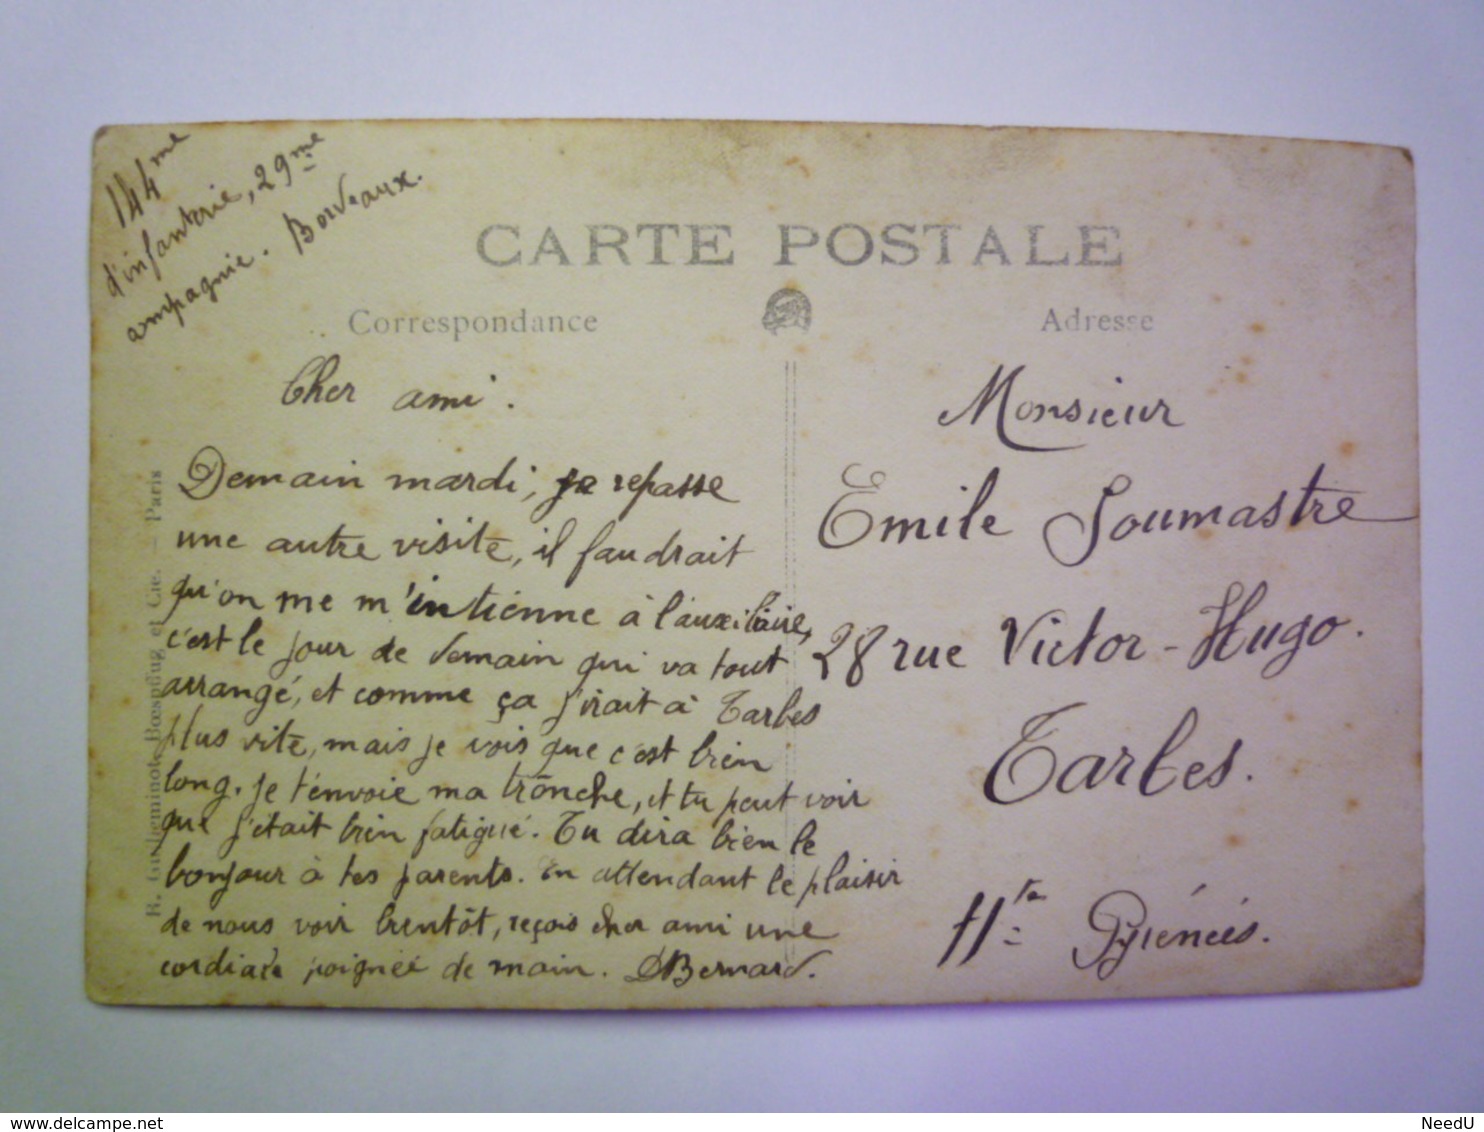 144me
d'infanterie, 29me
compagnie. Bordeaux.
CARTE POSTALE
Correspondance
Adresse
Cher ami.
Demain mardi, je repasse
une autre visite, il faudrait
qu'on me m'intienne à l'auxiliaire,
c'est le jour de demain qui va tout
arrangé, et comme ça j'irait à Tarbes
plus vite, mais je vois que c'est bien
long. Je t'envoie ma tronche, et tu peut voir
que j'était bien fatigué. Tu dira bien le
bonjour à tes parents. En attendant le plaisir
de nous voir bientôt, reçois cher ami une
cordiale poignée de main. Bernard.
Monsieur
Emile Soumastre
28 rue Victor-Hugo.
Tarbes.
Htes Pyrénées.
R. Guilleminot, Bœspflug et Cie. - Paris
NeedU
delcampe.net